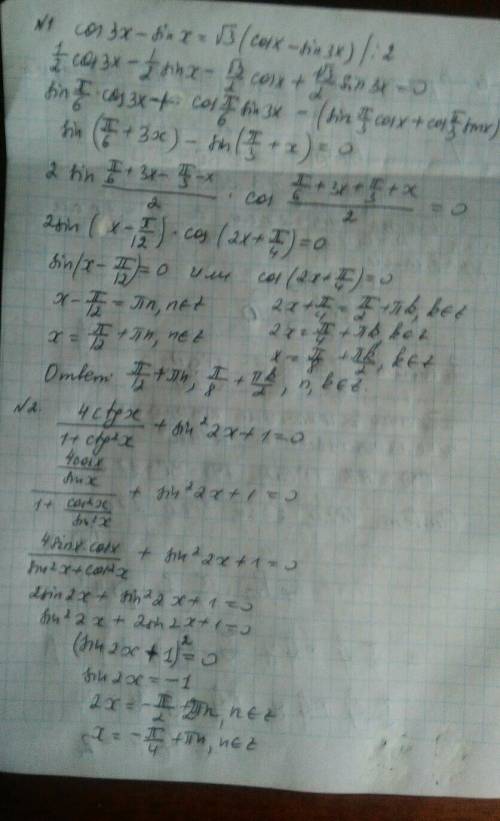 №1 cos 3x - sin x = √3 (cos x - sin 3x) /: 2
1/2 cos 3x - 1/2 sin x - √3/2 cos x + √3/2 sin 3x = 0
sin π/6 · cos 3x + cos π/6 sin 3x - (sin π/3 cos x + cos π/3 sin x)
sin (π/6 + 3x) - sin (π/3 + x) = 0
2 sin (π/6 + 3x - π/3 - x)/2 · cos (π/6 + 3x + π/3 + x)/2 = 0
2 sin (x - π/12) · cos (2x + π/4) = 0
sin (x - π/12) = 0 или cos (2x + π/4) = 0
x - π/12 = πn, n∈Z 2x + π/4 = π/2 + πk, k∈Z
x = π/12 + πn, n∈Z 2x = π/4 + πk, k∈Z
x = π/8 + πk/2, k∈Z
Ответ: π/12 + πn; π/8 + πk/2, n, k∈Z.
№2. 4ctg x/(1 + ctg²x) + sin² 2x + 1 = 0
(4cos x/sin x)/(1 + cos²x/sin²x) + sin² 2x + 1 = 0
4sin x · cos x/(sin²x + cos²x) + sin² 2x + 1 = 0
2sin 2x + sin² 2x + 1 = 0
sin² 2x + 2sin 2x + 1 = 0
(sin 2x + 1)² = 0
sin 2x = -1
2x = -π/2 + 2πn, n∈Z
x = -π/4 + πn, n∈Z